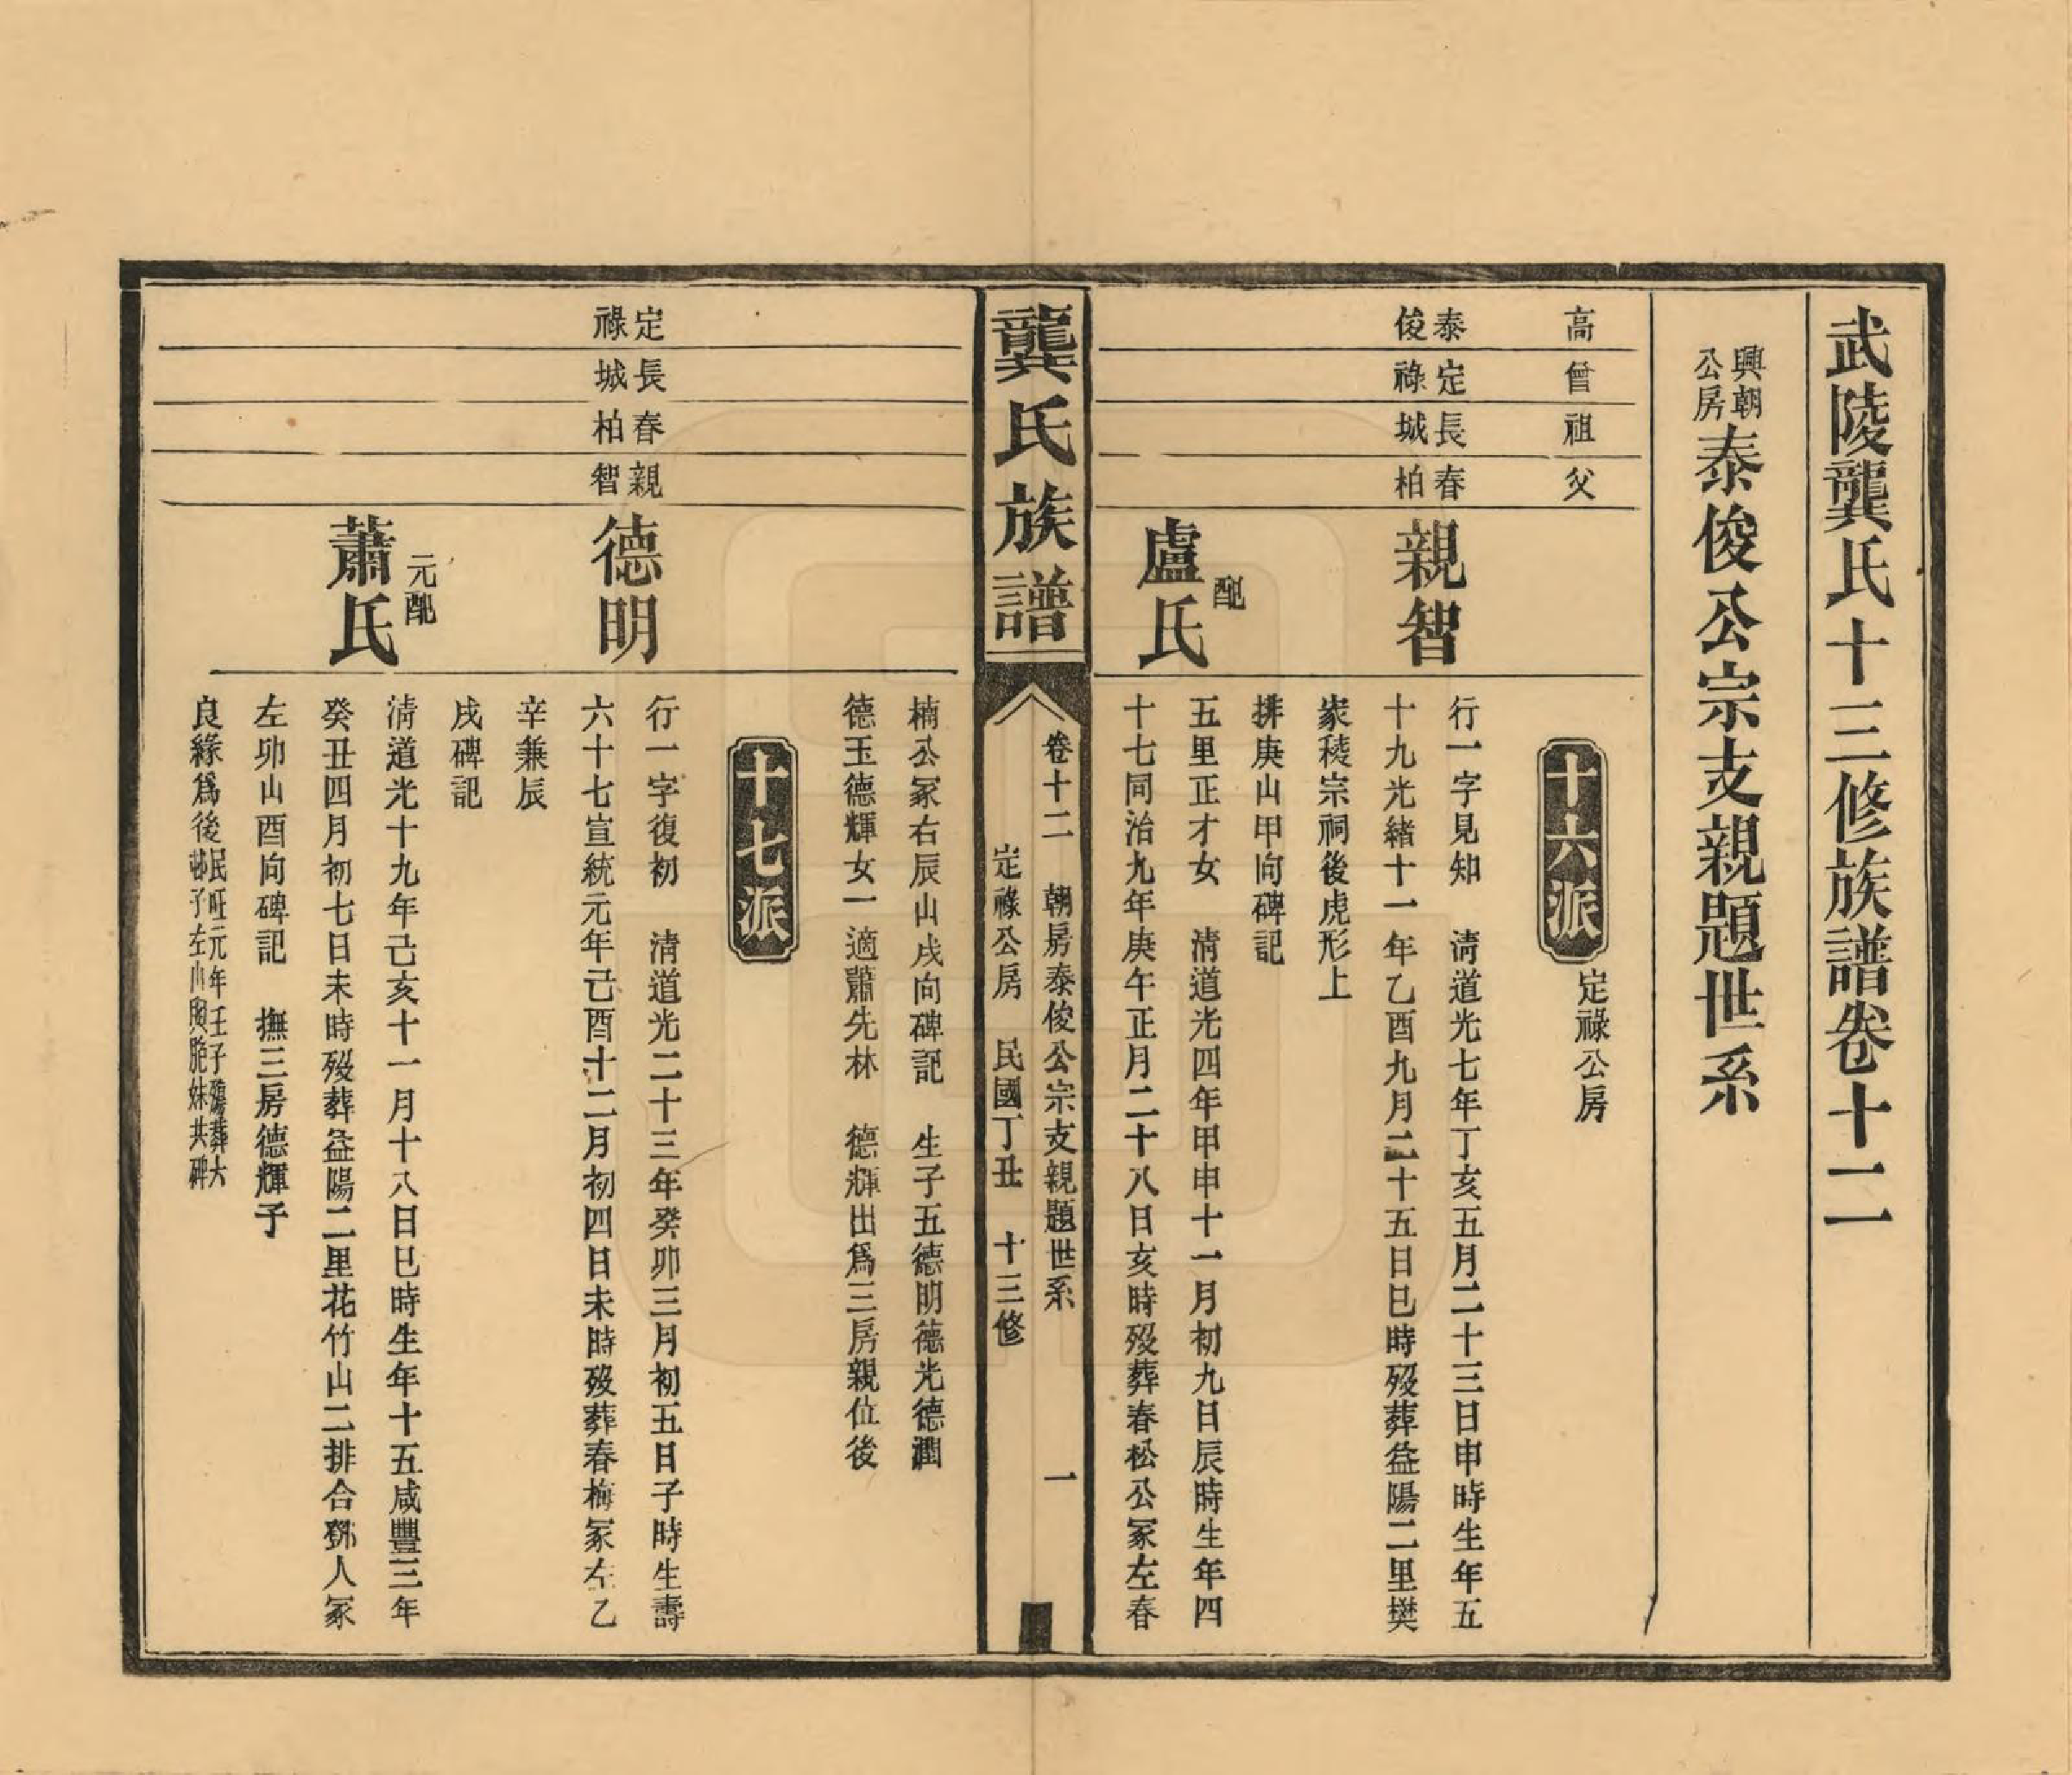 武陵龔氏十三修族譜卷十二
興朝公房
泰俊公宗支親題世系
高
曾
祖
父
十六派
定祿公房
泰俊
定祿
長城
春柏
親智
行一字見知 清道光七年丁亥五月二十三日申時生年五
十九光緒十一年乙酉九月二十五日巳時歿葬益陽二里樊
家稜宗祠後虎形上
排庚山甲向碑記
配
盧氏
五里正才女 清道光四年甲申十一月初九日辰時生年四
十七同治九年庚午正月二十八日亥時歿葬春松公冢左春
龔氏族譜
卷十二 朝房泰俊公宗支親題世系 一
定祿公房 民國丁丑 十三修
楠公冢右辰山戌向碑記 生子五德明德光德潤
德玉德輝女一適蕭先林 德輝出爲三房親位後
十七派
定祿
長城
春柏
親智
德明
行一字復初 清道光二十三年癸卯三月初五日子時生壽
六十七宣統元年己酉十二月初四日未時歿葬春梅冢左乙
辛兼辰
戌碑記
元配
蕭氏
清道光十九年己亥十一月十八日巳時生年十五咸豐三年
癸丑四月初七日未時歿葬益陽二里花竹山二排合鄧人冢
左卯山酉向碑記 撫三房德輝子
良緣爲後民旺元年壬子殤葬大
子左山胸胞妹共碑